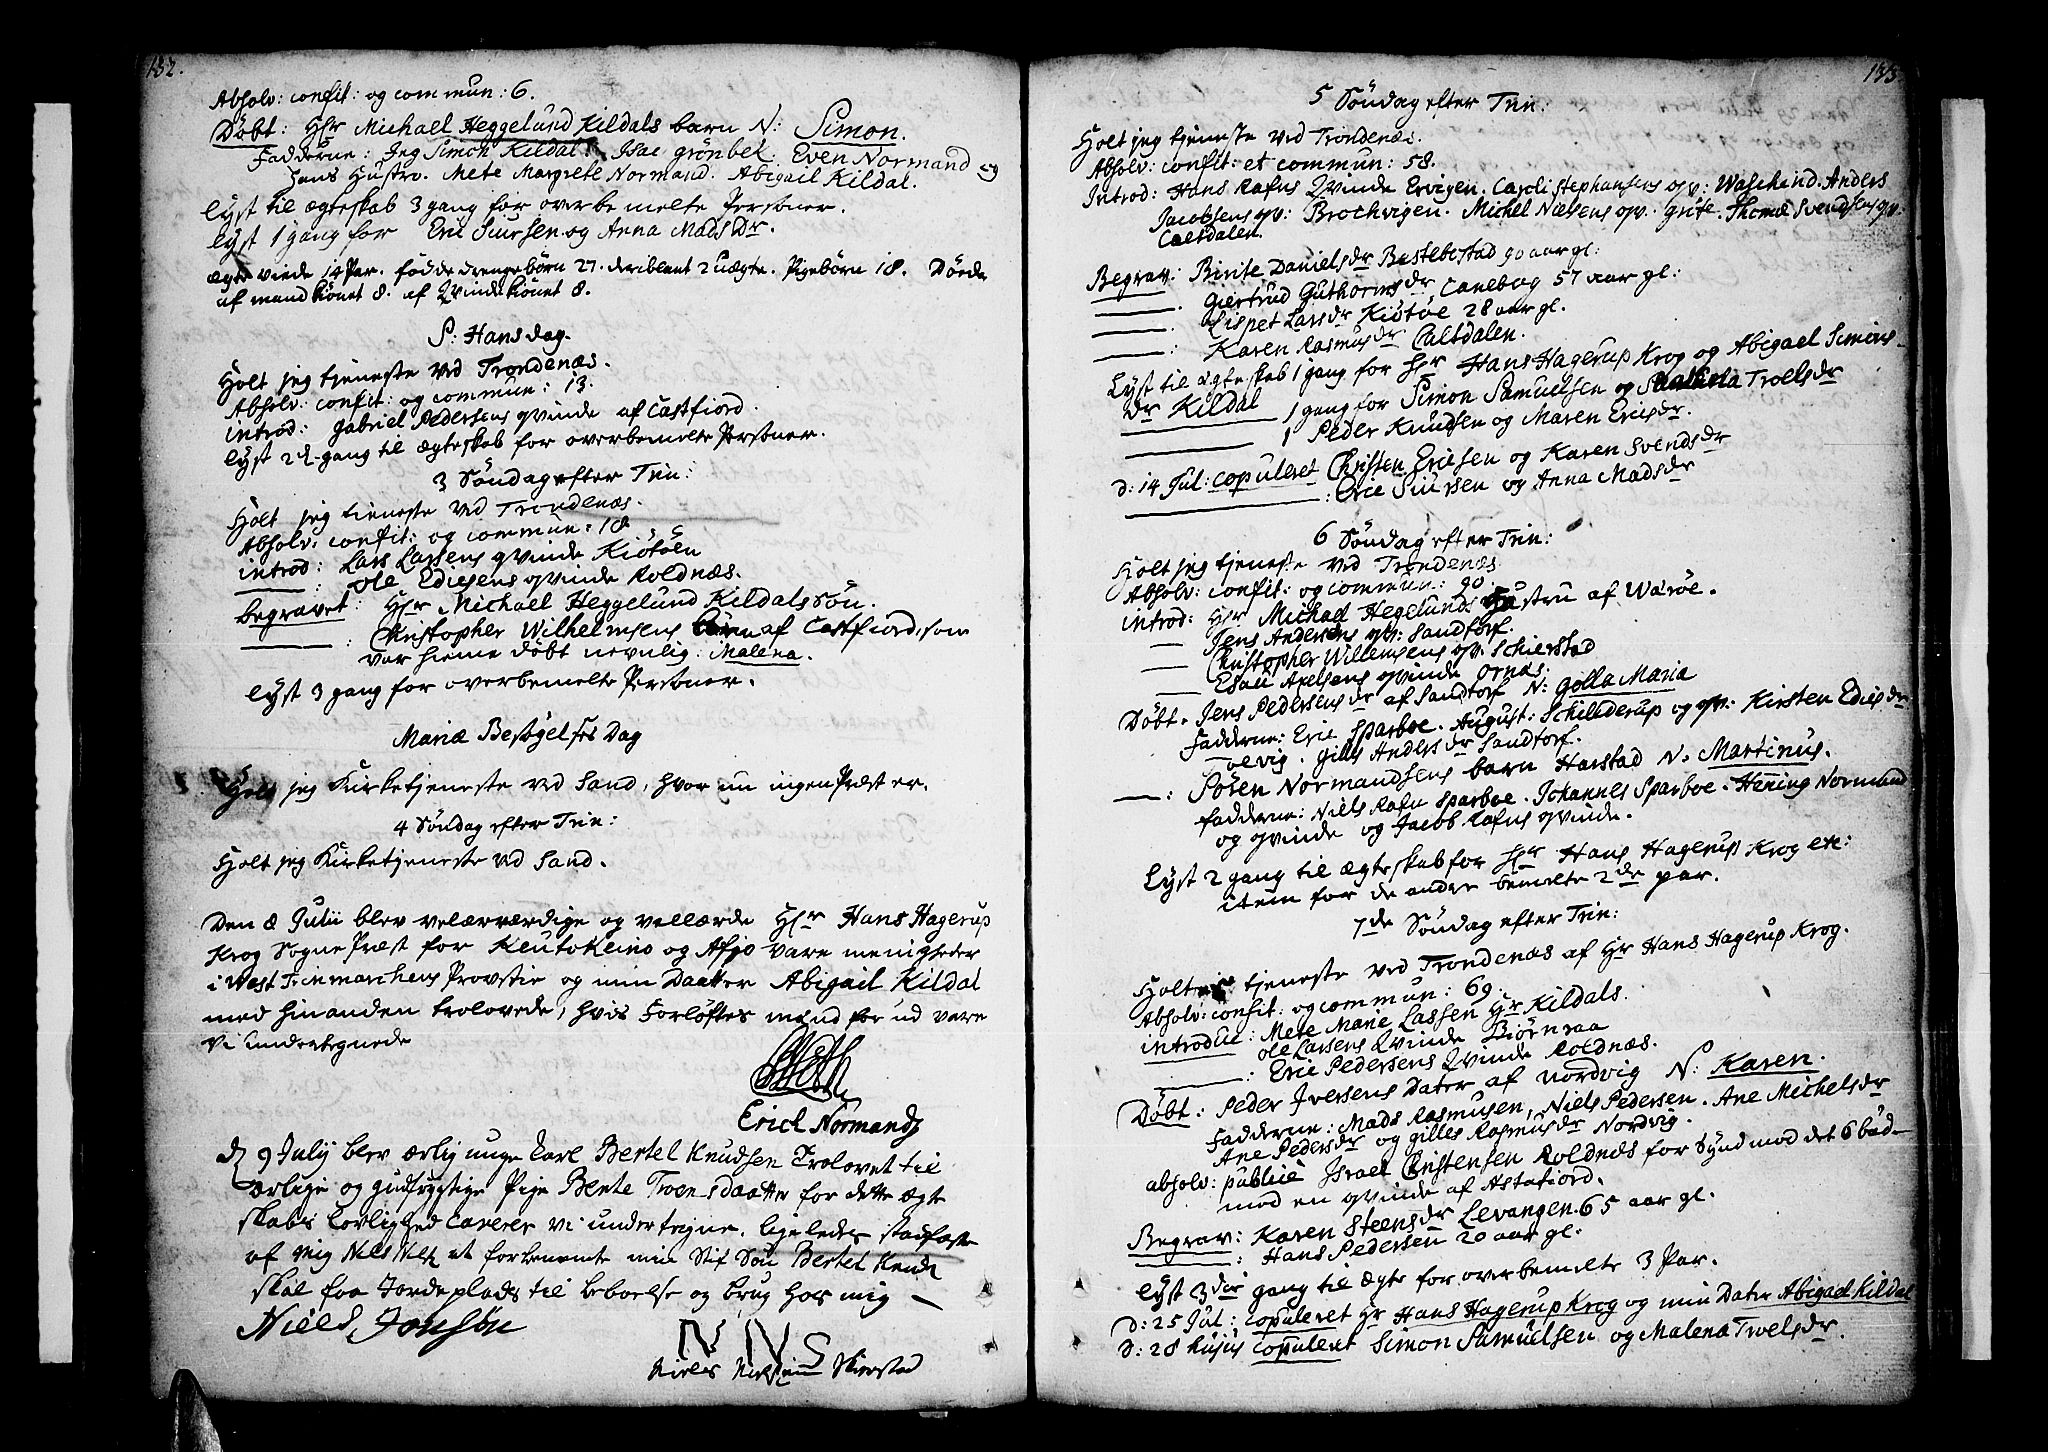 132.
Absolv: confit: og commun: 6.
Döbt: Hr Michael Heggelund Kildals barn N: Simon.
Fadderne: Jeg Simon Kildal. Isac Grönbek. Even Normand og
hans Hustro. Mete Margrete Normand. Abigail Kildal.
lyst til ægteskab 3 gang for overbemelte Personer.
lyst 1 gang for Eric Siursen og Anna Madsdr.
ægteviede 14 Par. födde drengebörn 27. deriblant 2 uægte. Pigebörn 18. Döede
af mandkönet 8. af Qvindekönet 8.
S: Hansdag.
Holt jeg tjeneste ved Trondenæs.
Absolv: confit: og commun: 13.
introd: Gabriel Pedersens qvinde af Castfiord.
lyst 2d. gang til ægteskab for overbemelte Personer.
3 Söndag efter Trin:
Holt jeg tieneste ved Trondenæs.
Absolv: confit: og commun: 18.
introd: Lars Larsens qvinde Kiötöen
——: Ole Ediesens qvinde Roldnæs.
begravet: Hr Michael Heggelund Kildals Sön.
——: Christopher Wilhelmsens barn af Castfiord, som
var hieme döbt nevnlig: Malena.
lyst 3 gang for overbemelte Personer.
Mariæ Besögelses Dag
Holt jeg Kirketjeneste ved Sand, hvor nu ingen Præst er.
4 Söndag efter Trin:
Holt jeg Kirketjeneste ved Sand.
Den 8 Julii blev velærværdige og vellærde Hr Hans Hagerup
Krog Sogne Præst for Keutokeino og Afjo vare menigheder
i Vest Finmarchens Provstie og min Daatter Abigail Kildal
med hinanden trolovede, hvis Forlöftes mænd for ud vare
Vi undertegnede
Erich Normand
d 9 July blev ærlig unge Carl Bertel Knudsen Trolovet til
ærlige og gudfrygtige Pige Bente Troensdaatter for dette ægte
skabs Lovlighed Caverer vi undertegne. ligeledes stadfæste
af mig Niels at forbenemte min Stif Sön Bertel Knuds
skal faa Jordeplads til beboelse og brug hos mig —
Niels Jonsön
N N S
Niels Nielsen Skierstad
133.
5 Söndag efter Trin:
Holt jeg tjeneste ved Trondenæs.
Absolv: confit: et commun: 58.
Introd: Hans Rafns Qvinde Ervigen. Caroli Stephansens qv: Waskind. Anders
Jacobsens qv: Brochvigen. Michel Nielsens qv. Gröte. Thomæ Svendsens qv:
Caltdalen.
Begrav: Birite Danielsdr Bestebostad 90 aar gl:
——: Giertrud Guthormsdr, Canebog 57 aar gl:
——: Lispet Larsdr Kiötöe 28 aar gl.
——: Karen Rasmusdr Caltdalen.
Lyst til ægteskab 1 gang for Hr Hans Hagerup Krog og Abigael Simons
dr Kildal —— 1 gang for Simon Samuelsen og Malena Troelsdr
—— 1 Peder Knudsen og Maren Ericsdr.
d: 14 Jul: copuleret Christen Ericsen og Karen Svendsdr
——: Eric Siursen og Anna Madsdr
6 Söndag efter Trin:
Holt jeg tjeneste ved Trondenæs
Absolv: confit: og commun: 90.
introd: Hr Michael Hegelunds Hustru af Waröe.
— Jens Andersens qv: Sandtorf.
— Christopher Willemsens qv: Schierstad
— Esaü Axelsens qvinde Ornæs.
Döbt. Jens Pedersens dr af Sandtorf N: Golla Maria
Fadderne: Eric Sparboe. August: Schilderup og qv: Kirsten Ediesdr
oevig. Gills Andersdr Sandtorf.
——: Sören Normandsens barn Harstad N: Martinus.
Fadderne: Niels Rafn Sparboe. Johannes Sparboe. Henning Normand
og qvinde og Jacob Rafns qvinde.
Lyst 2 gang til ægteskab for Hr Hans Hagerup Krog etc:
item for de andre bemelte 2de par.
7de Söndag efter Trin:
Holt tjeneste ved Trondenæs af Hr Hans Hagerup Krog.
Absolv: confit: og commun: 69.
introduc: Mete Marie Lassen Hr Kildals.
Ole Larsens Qvinde Biörnraa
——: Eric Pedersens Qvinde Roldnæs.
Döbt: Peder Iversens Dater af Nordvig N: Karen.
Fadderne: Mads Rasmusen, Niels Pedersen. Ane Michelsdr
Ane Pedersdr og Gilles Rasmusdr Nordvig.
absolv: publicè Israel Christensen Roldnæs for Synd mod det 6 bud
med en qvinde af Astafiord.
Begrav: Karen Steensdr Levangen 65 aar gl.
——: Hans Pedersen 20 aar gl.
lyst 3die gang til ægte for overbemelte 3 Par.
d: 25 Jul: copuleret Hr Hans Hagerup Krog og min Dater Abigael Kildal
d: 28 hujus copuleret Simon Samuelsen og Malena Troelsdr.